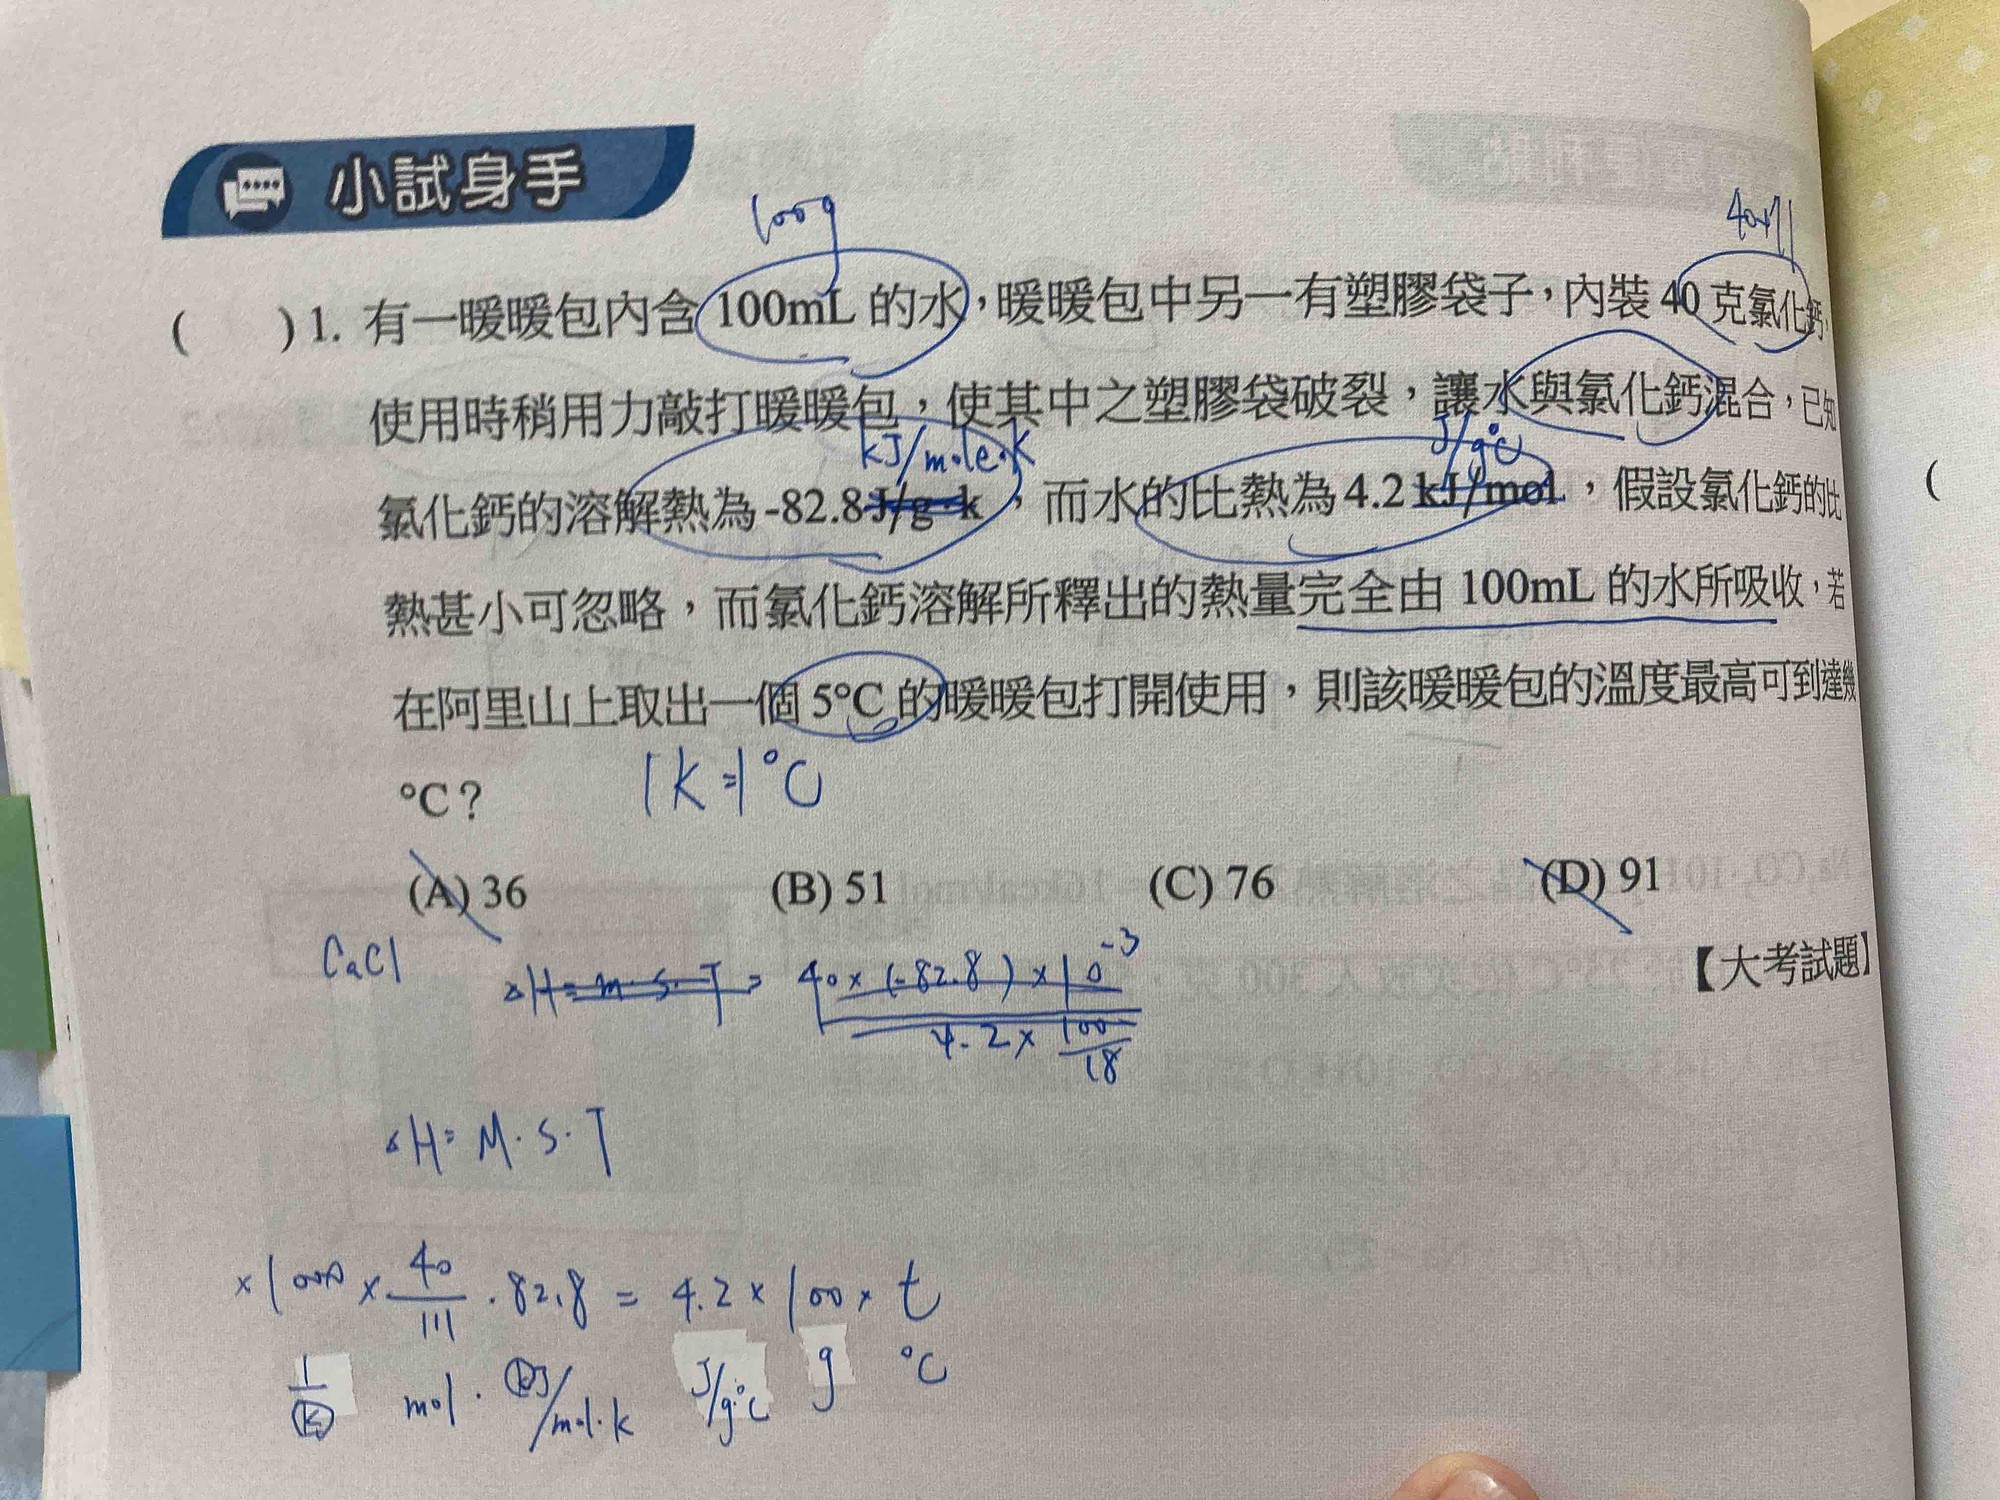 小試身手
100g
40×111
( )1. 有一暖暖包內含 100mL 的水，暖暖包中另一有塑膠袋子，內裝 40 克氯化鈣，
使用時稍用力敲打暖暖包，使其中之塑膠袋破裂，讓水與氯化鈣混合，已知
kJ/mole·K J/g℃
氯化鈣的溶解熱為 -82.8 J/g·k，而水的比熱為 4.2 kJ/mol，假設氯化鈣的比
熱甚小可忽略，而氯化鈣溶解所釋出的熱量完全由 100mL 的水所吸收，若
在阿里山上取出一個 5°C 的暖暖包打開使用，則該暖暖包的溫度最高可到達幾
°C？
1K=1°C
(A) 36 (B) 51 (C) 76 (D) 91
【大考試題】
CaCl
△H=m·S·T = 40×(-82.8)×10⁻³
4.2×100/18
△H= M·S·T
×1000 × 40/111 · 82.8 = 4.2 × 100 × t
1/k mol · kJ/mol·k J/g·°C g °C
(